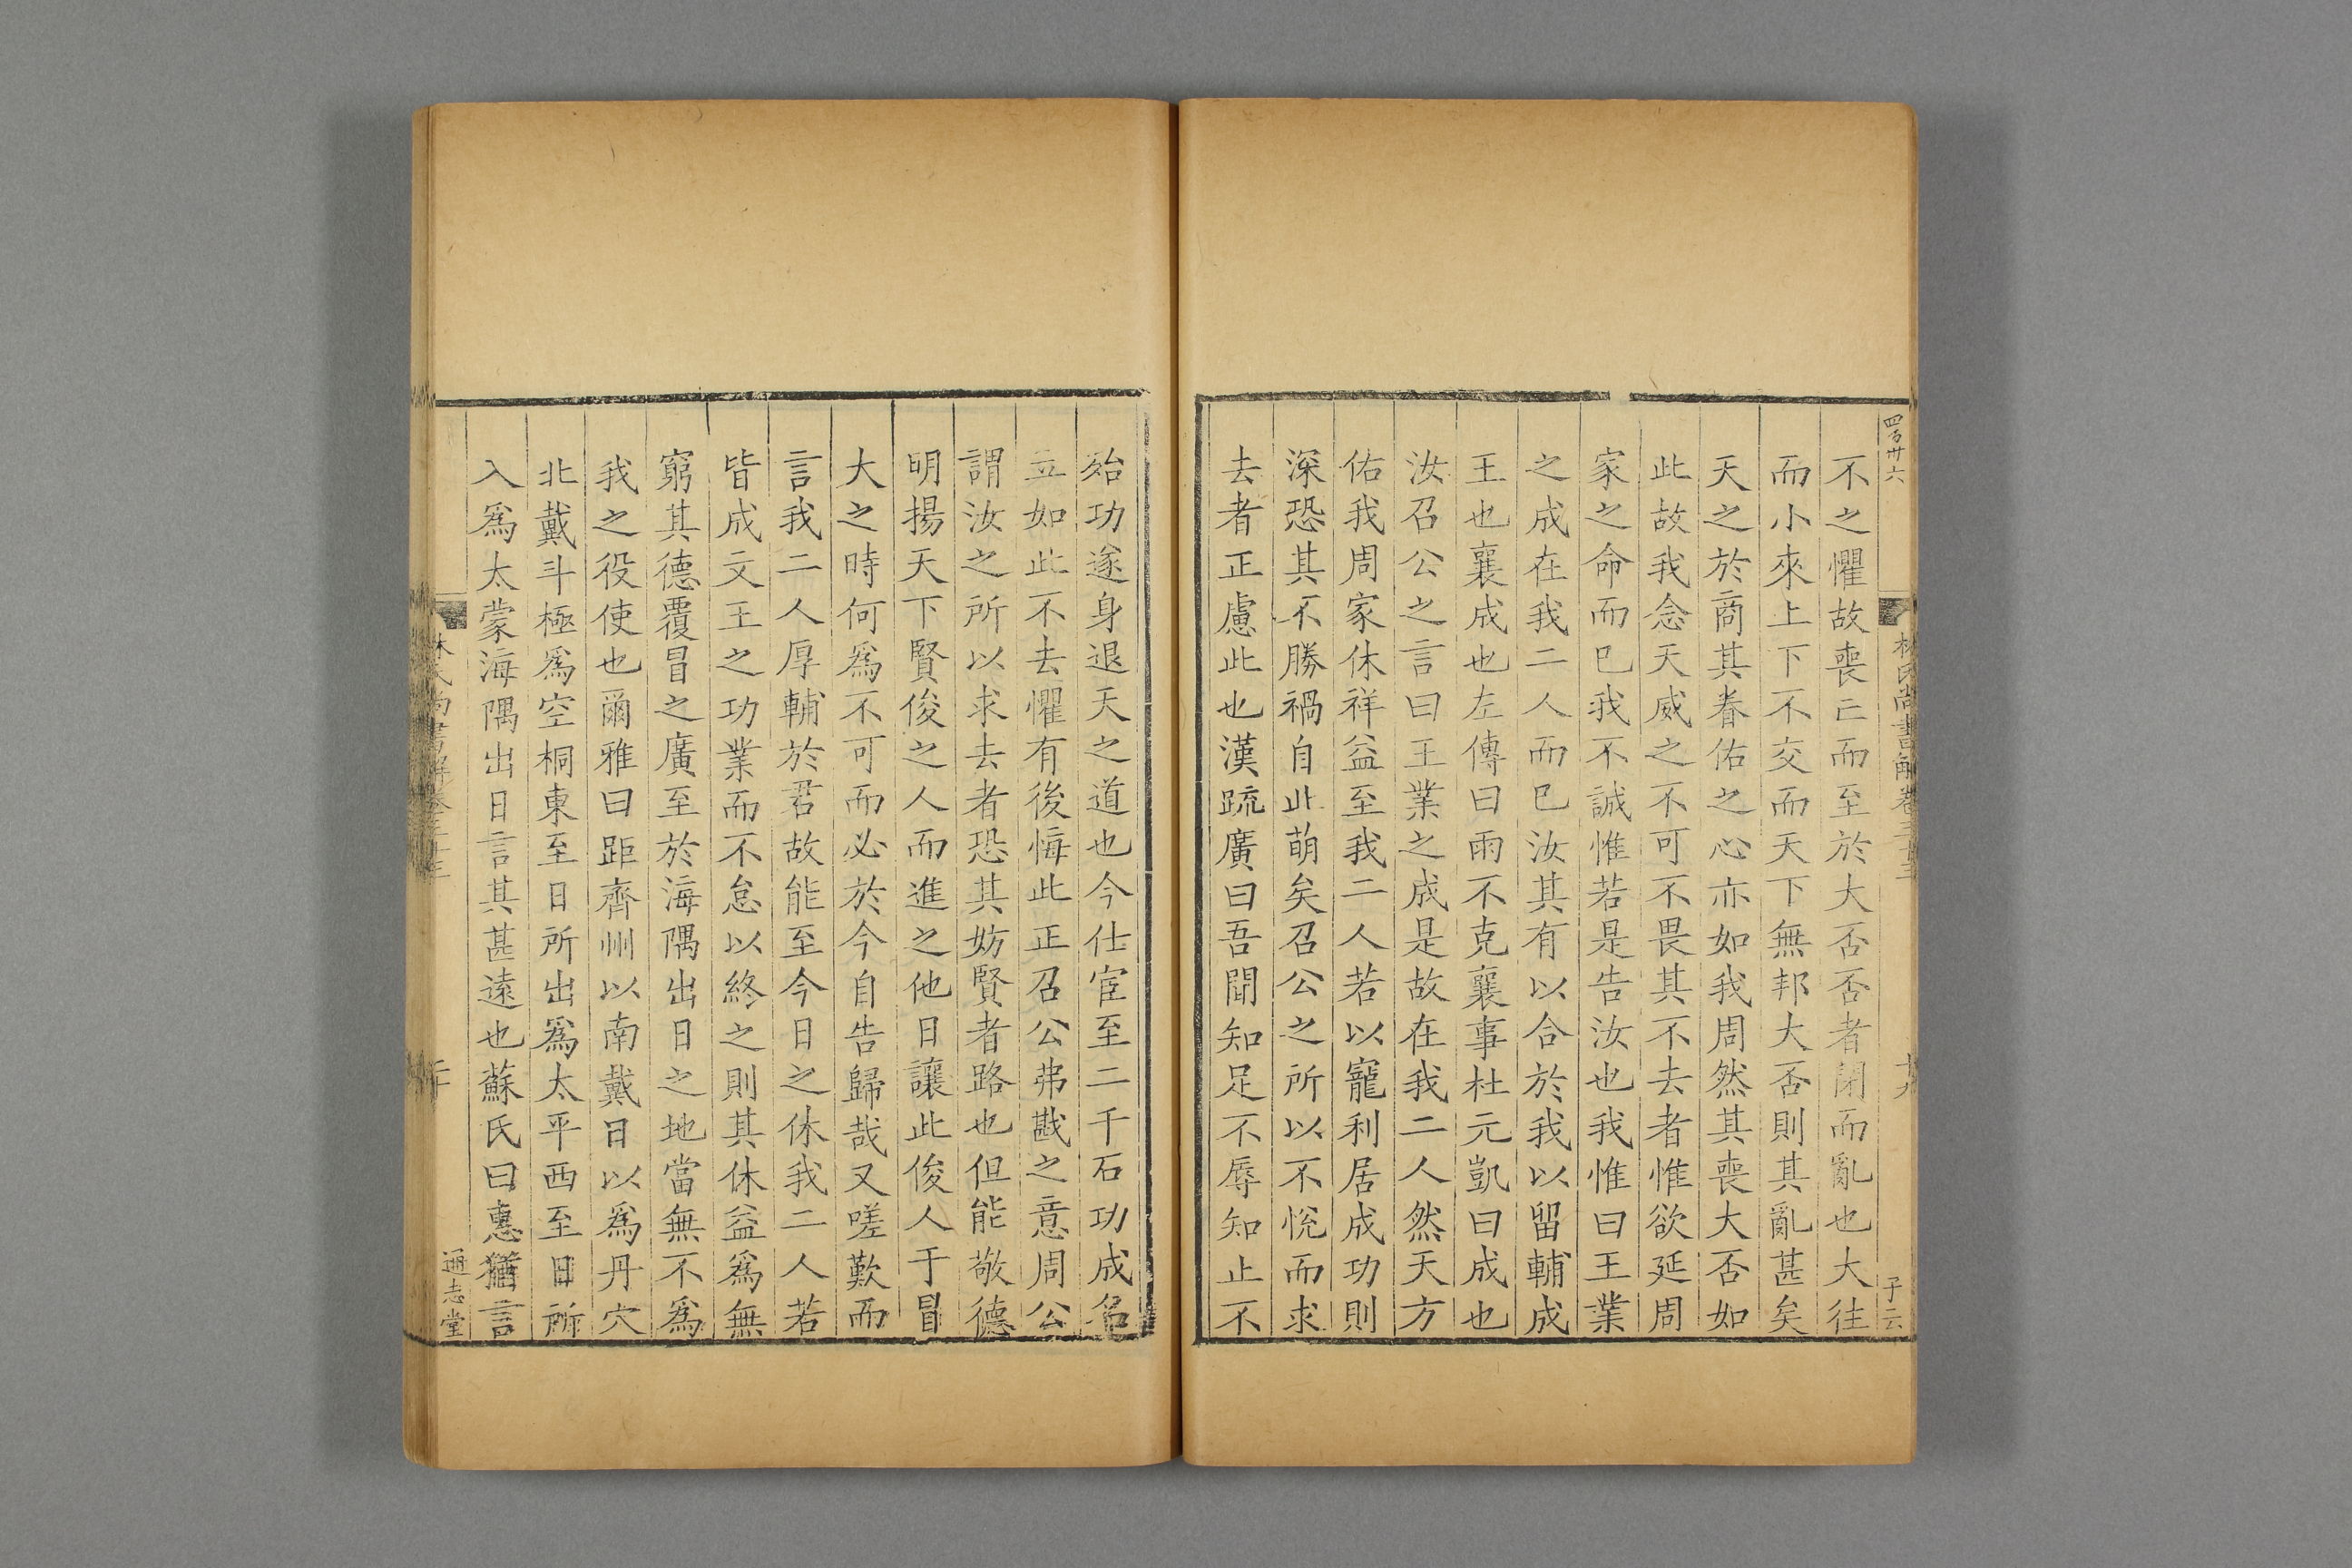 四百卅六
林氏尚書解卷三十三
十九
子云
不之懼故喪亡而至於大否否者閉而亂也大往
而小來上下不交而天下無邦大否則其亂甚矣
天之於商其眷佑之心亦如我周然其喪大否如
此故我念天威之不可不畏其不去者惟欲延周
家之命而巳我不誠惟若是告汝也我惟曰王業
之成在我二人而巳汝其有以合於我以留輔成
王也襄成也左傳曰雨不克襄事杜元凱曰成也
汝召公之言曰王業之成是故在我二人然天方
佑我周家休祥益至我二人若以寵利居成功則
深恐其不勝禍自此萌矣召公之所以不悅而求
去者正慮此也漢疏廣曰吾聞知足不辱知止不
殆功遂身退天之道也今仕宦至二千石功成名
立如此不去懼有後悔此正召公弗戡之意周公
謂汝之所以求去者恐其妨賢者路也但能敬德
明揚天下賢俊之人而進之他日讓此俊人于冒
大之時何爲不可而必於今自告歸哉又嗟歎而
言我二人厚輔於君故能至今日之休我二人若
皆成文王之功業而不怠以終之則其休益爲無
窮其德覆冒之廣至於海隅出日之地當無不爲
我之役使也爾雅曰距齊州以南戴日以爲丹穴
北戴斗極爲空桐東至日所出爲太平西至日所
入爲太蒙海隅出日言其甚遠也蘇氏曰惠猶言
林氏尚書解卷三十三
二十
通志堂